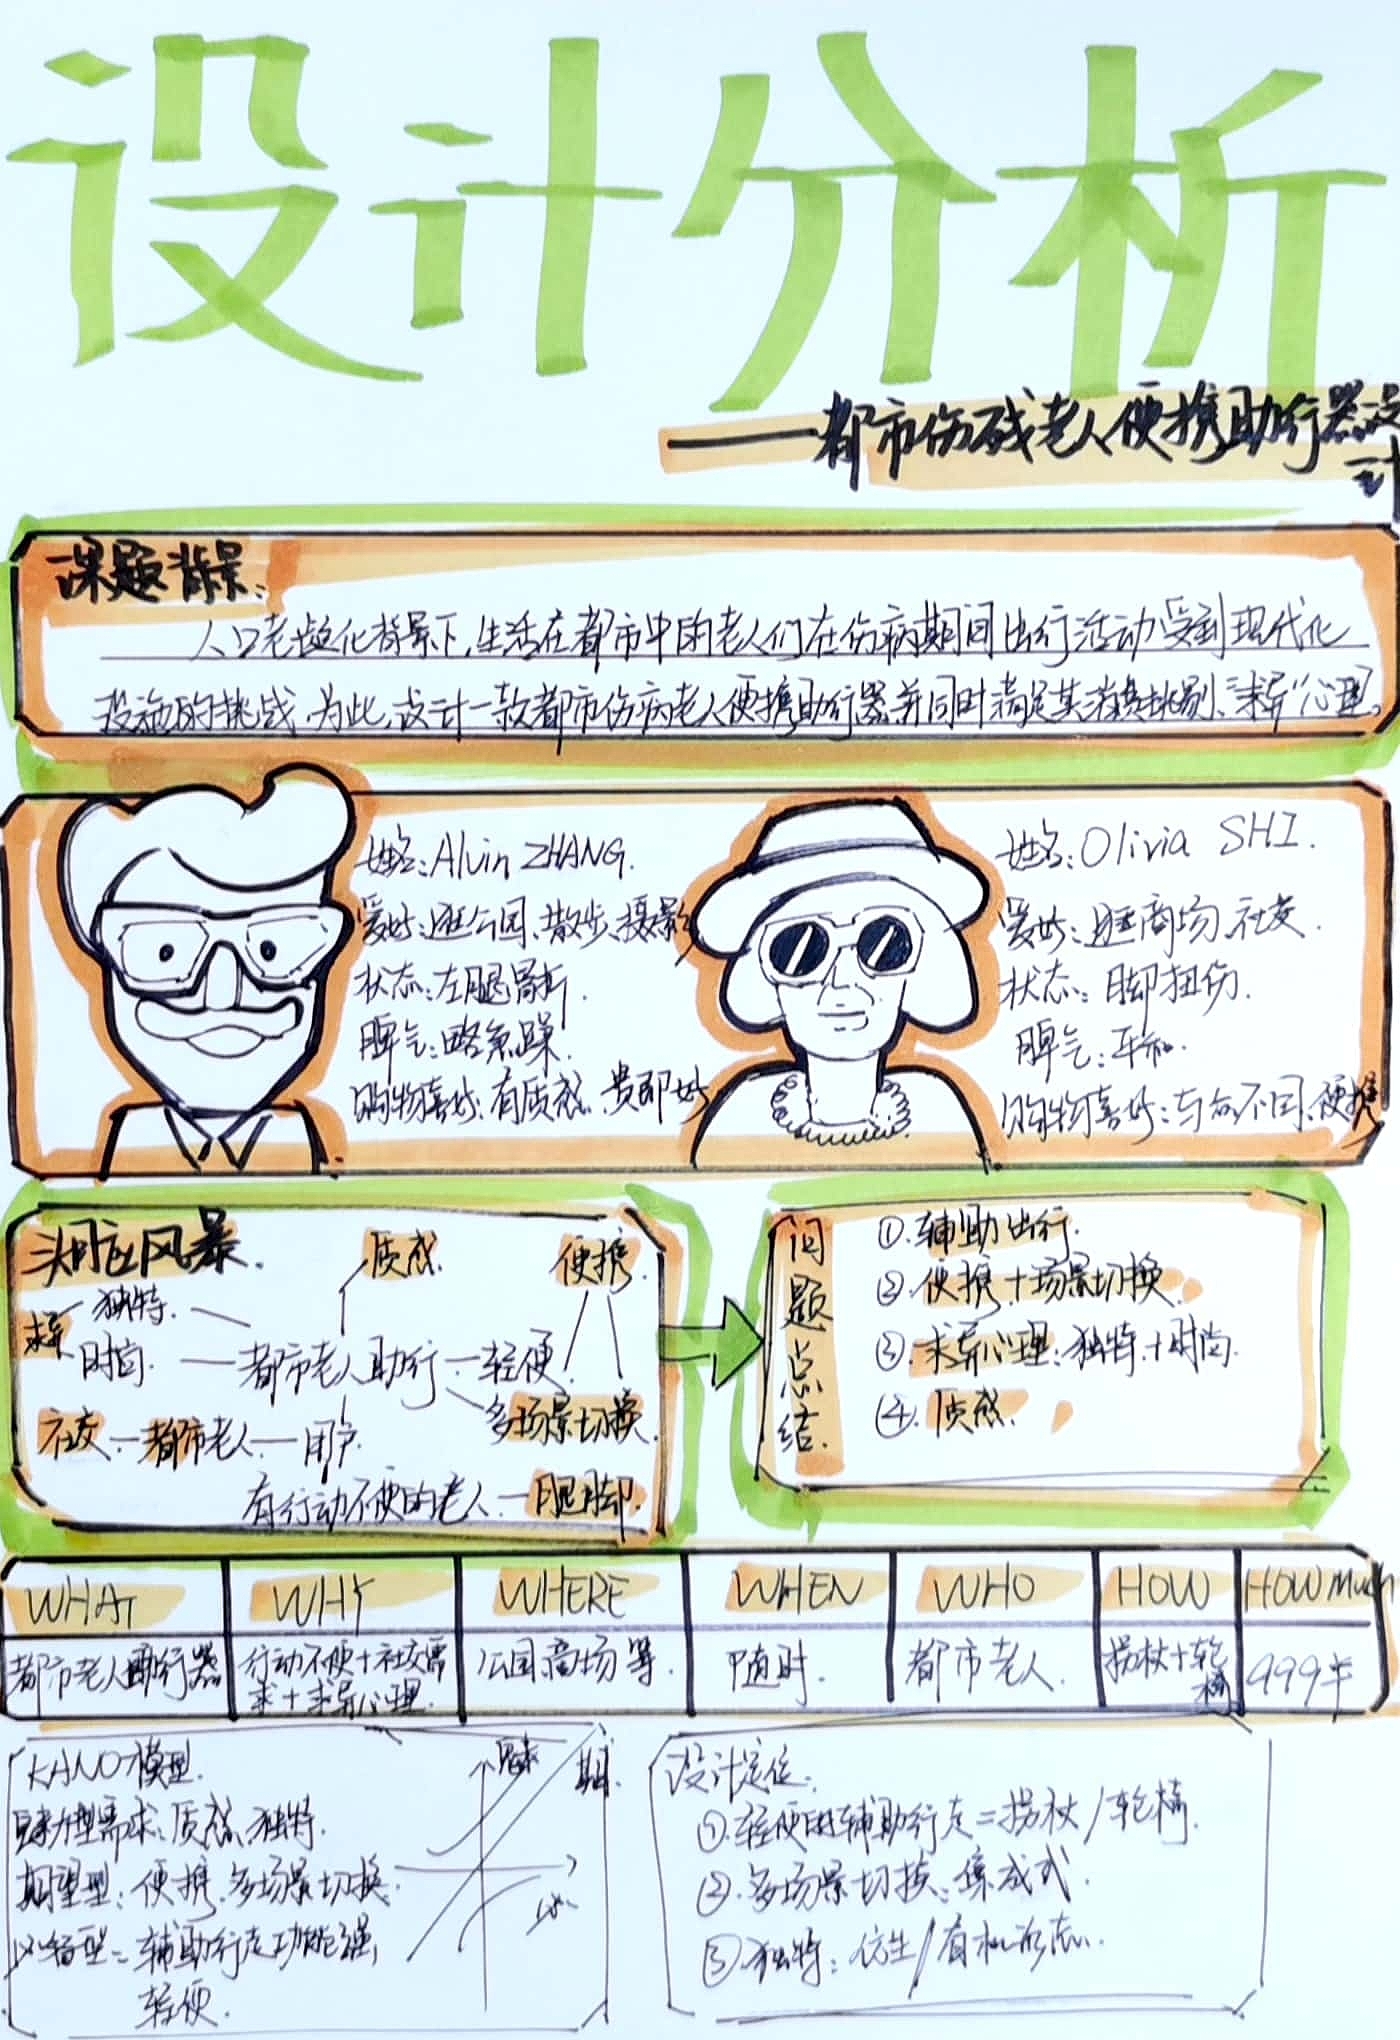 设计分析
——都市伤残老人便携助行器设
计
课题背景.
人口老龄化背景下,生活在都市中的老人们在伤病期间出行活动受到现代化
设施的挑战.为此,设计一款都市伤病老人便携助行器并同时满足其消费挑剔、"求异"心理.
姓名:Alvin ZHANG.
爱好:逛公园、散步、摄影
状态:左腿骨折.
脾气:略急躁.
购物喜好:有质感、贵即好
姓名:Olivia SHI.
爱好:逛商场、社交.
状态:脚扭伤.
脾气:平和.
购物喜好:与众不同、便携
头脑风暴.
质感.
便携.
求异
独特.
时尚.
都市老人助行
轻便.
多场景切换.
社交—都市老人—用户
有行动不便的老人—腿脚.
问题点结.
①.辅助出行.
②.便携+场景切换.
③.求异心理:独特+时尚.
④.质感.
WHAT WHY WHERE WHEN WHO HOW HOW Much
都市老人助行器
行动不便+社交需
求+求异心理.
公园商场等.
随时.
都市老人.
拐杖+轮
椅
999¥
KANO模型.
魅力型需求:质感、独特.
期望型:便携.多场景切换.
必备型:辅助行走功能强,
轻便.
魅
期.
必.
设计定位:
①.轻便的辅助行走=拐杖/轮椅.
②.多场景切换:集成式.
③.独特:仿生/有机形态.